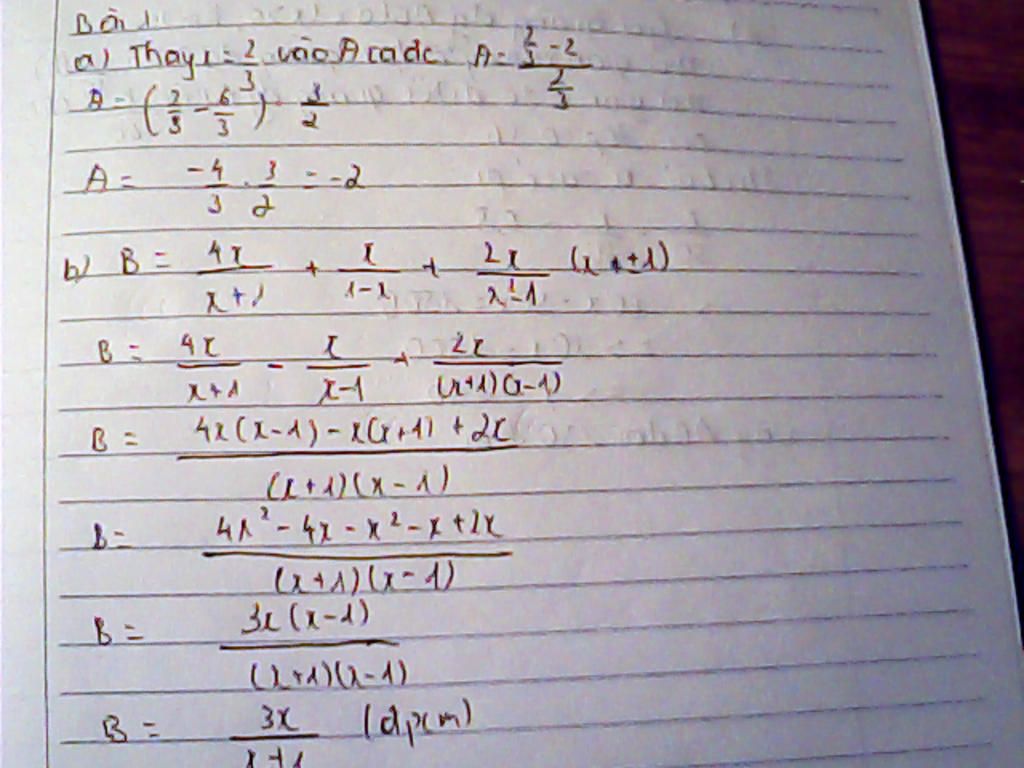 Bài 1
a) Thay x = 2/3 vào A ta đc A = (2/3 - 2)/(2/3)
A = (2/3 - 6/3) 3/2
A = -4/3 . 3/2 = -2
b) B = 4x/(x+1) + x/(1-x) + 2x/(x²-1) (x ≠ ±1)
B = 4x/(x+1) - x/(x-1) + 2x/((x+1)(x-1))
B = (4x(x-1) - x(x+1) + 2x)/((x+1)(x-1))
B = (4x² - 4x - x² - x + 2x)/((x+1)(x-1))
B = 3x(x-1)/((x+1)(x-1))
B = 3x/(x+1) (đpcm)